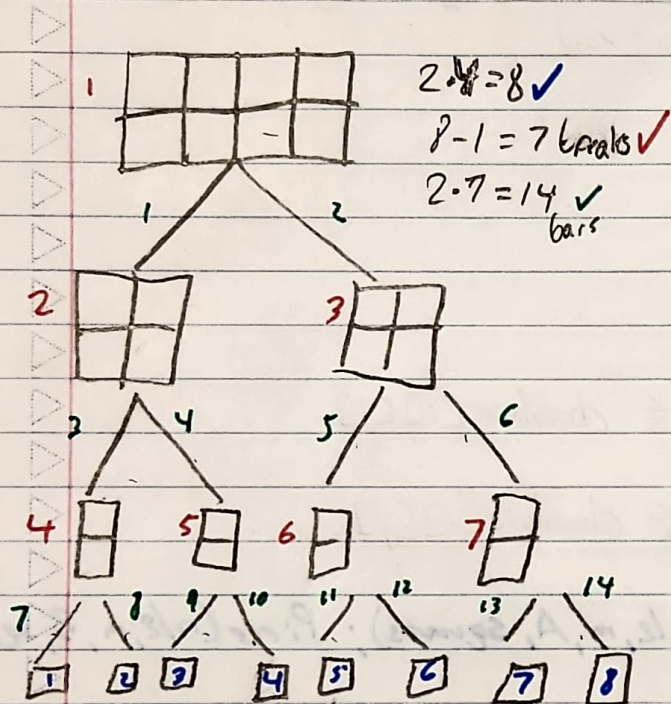 1
2·4=8 ✓
8-1=7 breaks ✓
2·7=14 ✓
bars
1 2
2 3
3 4 5 6
4 5 6 7
7 8 9 10 11 12 13 14
1 2 3 4 5 6 7 8